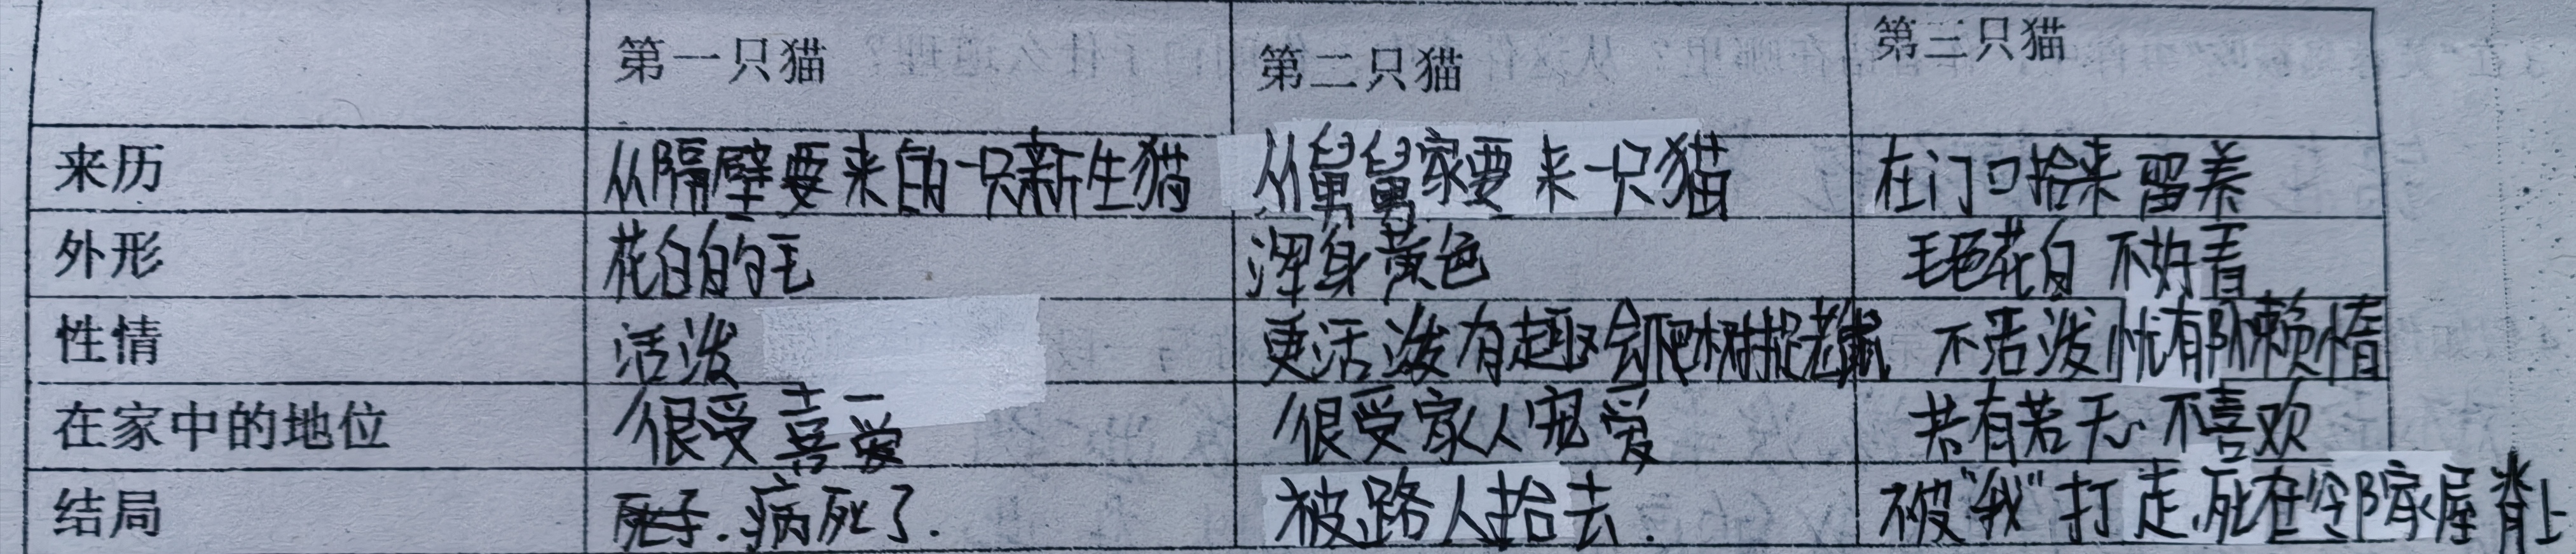 第一只猫 第二只猫 第三只猫
来历 从隔壁要来的一只新生猫 从舅舅家要来一只猫 在门口拾来留养
外形 花白的毛 浑身黄色 毛色花白 不好看
性情 活泼 更活泼有趣会爬树捉老鼠 不活泼忧有郁懒惰
在家中的地位 很受喜爱 很受家人宠爱 若有若无 不喜欢
结局 病死了. 被路人拾去. 被"我"打走,死在邻家屋脊上